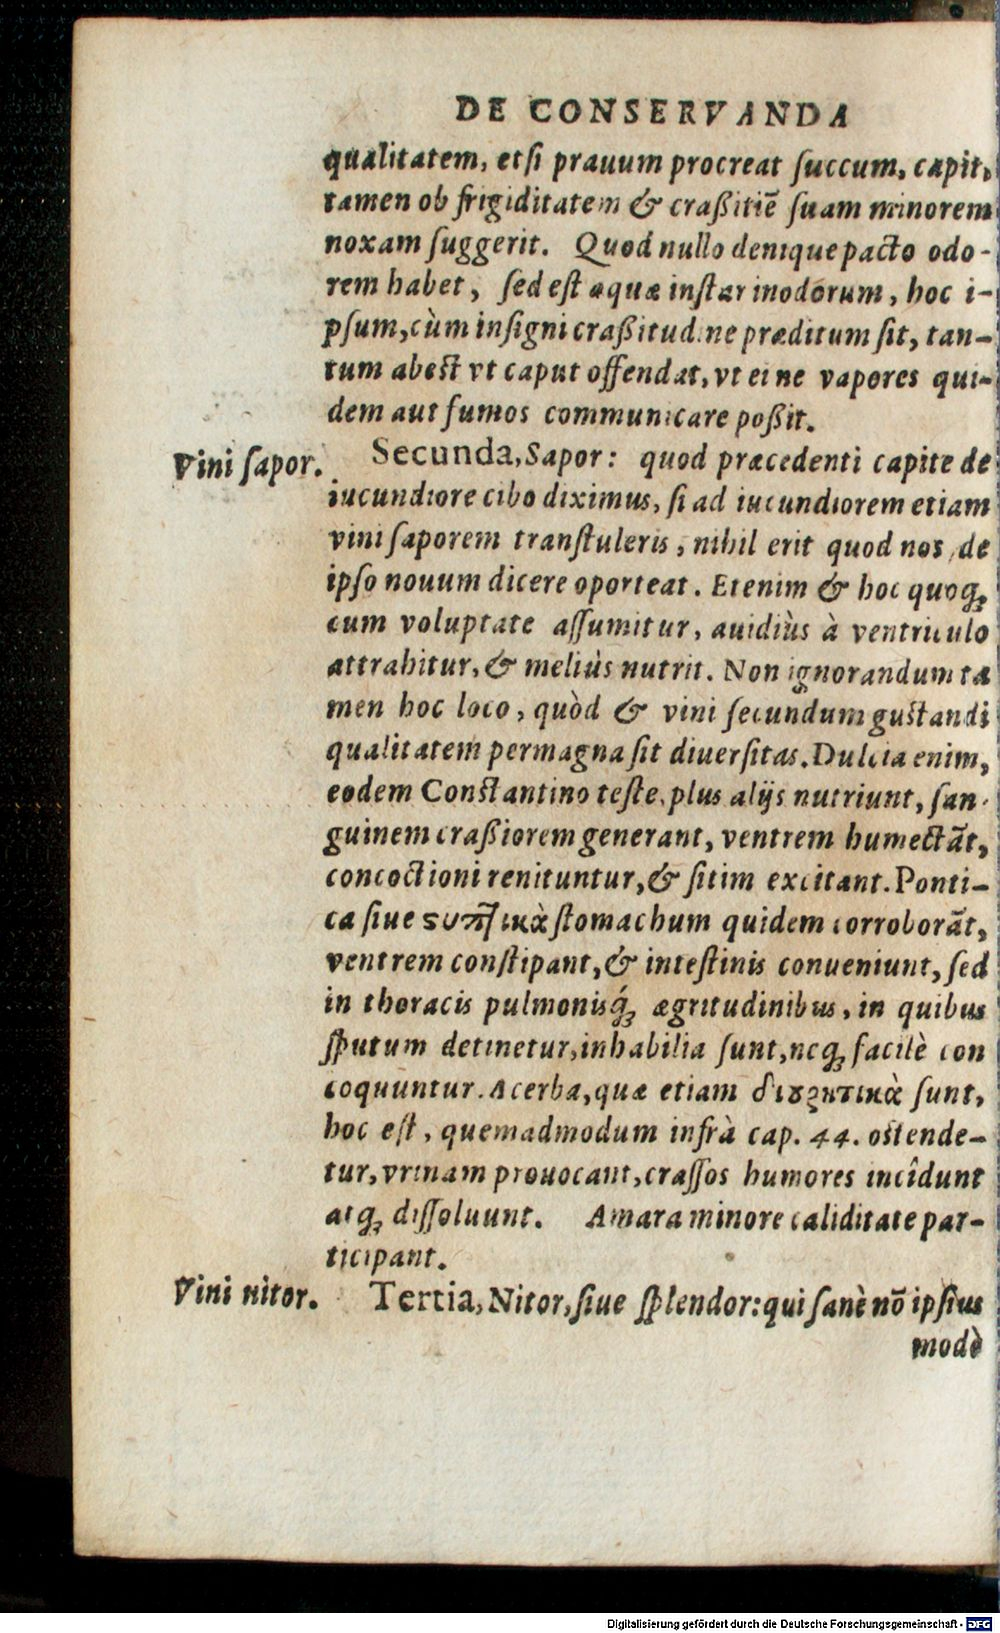 DE CONSERVANDA
qualitatem, etſi prauum procreat ſuccum, capiti
tamen ob frigiditatem & craßitiē ſuam minorem
noxam ſuggerit. Quod nullo denique pacto odo-
rem habet, ſed eſt aquæ inſtar inodorum, hoc i-
pſum, cùm inſigni craßitudine præditum ſit, tan-
tum abest vt caput offendat, vt ei ne vapores qui-
dem aut fumos communicare poßit.
Vini ſapor. Secunda, Sapor: quod præcedenti capite de
iucundiore cibo diximus, ſi ad iucundiorem etiam
vini ſaporem tranſtuleris, nihil erit quod nos de
ipſo nouum dicere oporteat. Etenim & hoc quoq;
cum voluptate aſſumitur, auidiùs à ventriculo
attrahitur, & meliùs nutrit. Non ignorandum ta
men hoc loco, quòd & vini ſecundum gustandi
qualitatem permagna ſit diuerſitas. Dulcia enim,
eodem Constantino teſte, plus alijs nutriunt, ſan-
guinem craßiorem generant, ventrem humectāt,
concoctioni renituntur, & ſitim excitant. Ponti-
ca ſiue ςυπτικὰ ſtomachum quidem corroborāt,
ventrem conſtipant, & inteſtinis conueniunt, ſed
in thoracis pulmonisq́; ægritudinibus, in quibus
ſputum detinetur, inhabilia ſunt, neq; facilè con
coquuntur. Acerba, quæ etiam διουρητικὰ ſunt,
hoc eſt, quemadmodum infrà cap. 44. ostende-
tur, vrinam prouocant, craſſos humores incîdunt
atq; diſſoluunt. Amara minore caliditate par-
ticipant.
Vini nitor. Tertia, Nitor, ſiue ſplendor: qui ſanè nō ipſius
modè
Digitalisierung gefördert durch die Deutsche Forschungsgemeinschaft - DFG